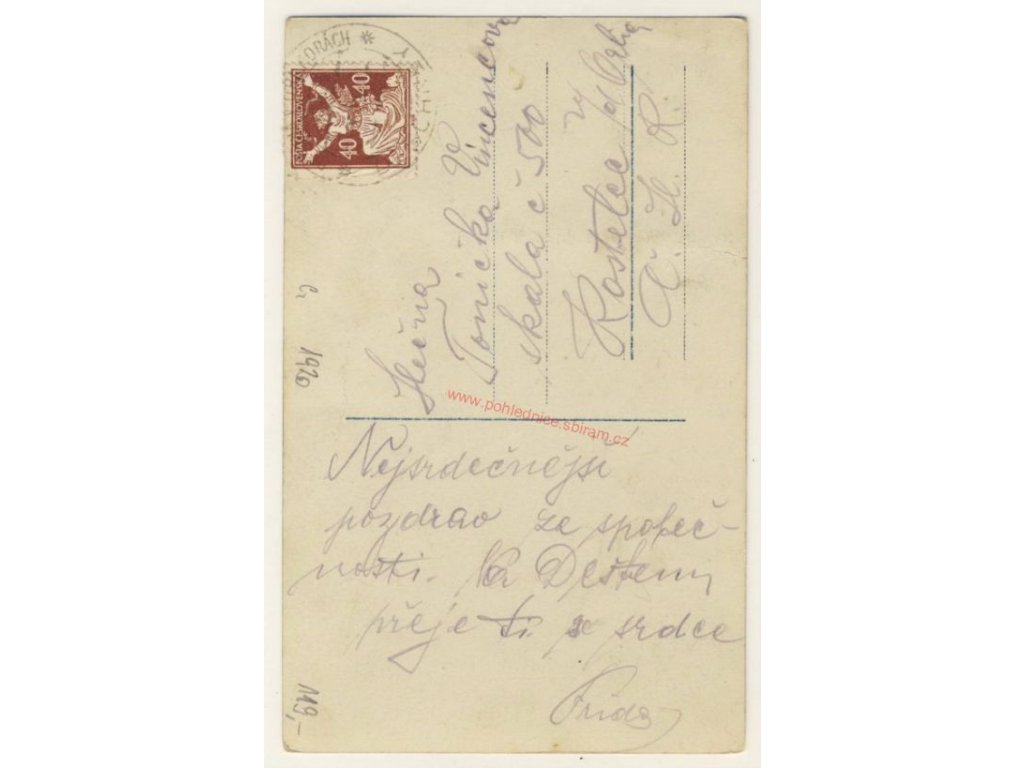 ORÁCH *
POŠTA ČESKOSLOVENSKÁ
40 40
Slečna
Tonička Vincencova
skala č 500
v
Kostelec
Č. S. R.
1920
119,-
www.pohlednice.sbiram.cz
Nejsrdečnější
pozdrav ze společ-
nosti. Na Deštem
přeje ti ze srdce
Frida